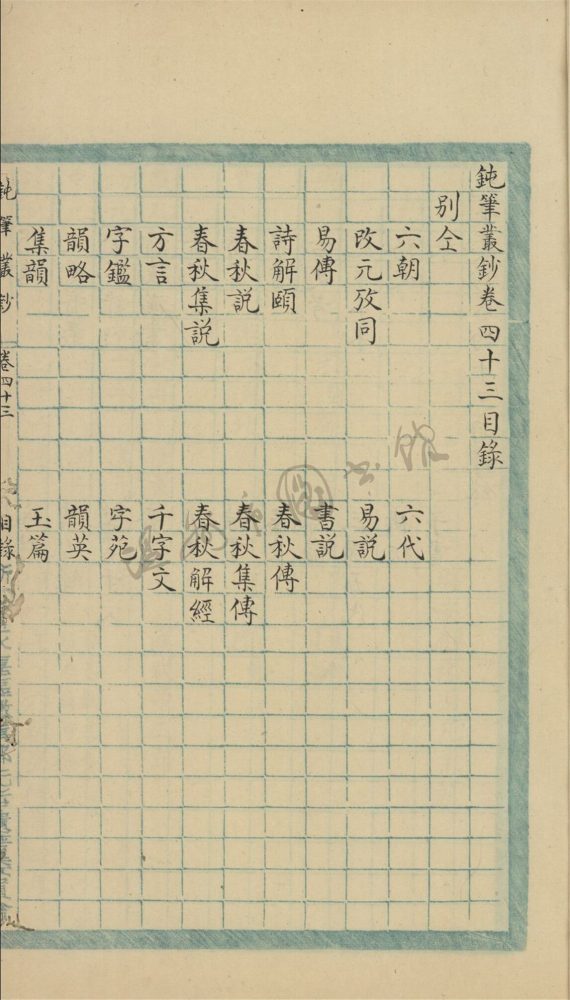 鈍筆叢鈔卷四十三目錄
別仝
六朝 六代
改元攷同 易說
易傳 書說
詩解頤 春秋傳
春秋說 春秋集傳
春秋集說 春秋解經
方言 千字文
字鑑 字苑
韻略 韻英
集韻 玉篇
鈍筆叢鈔 卷四十三 目錄